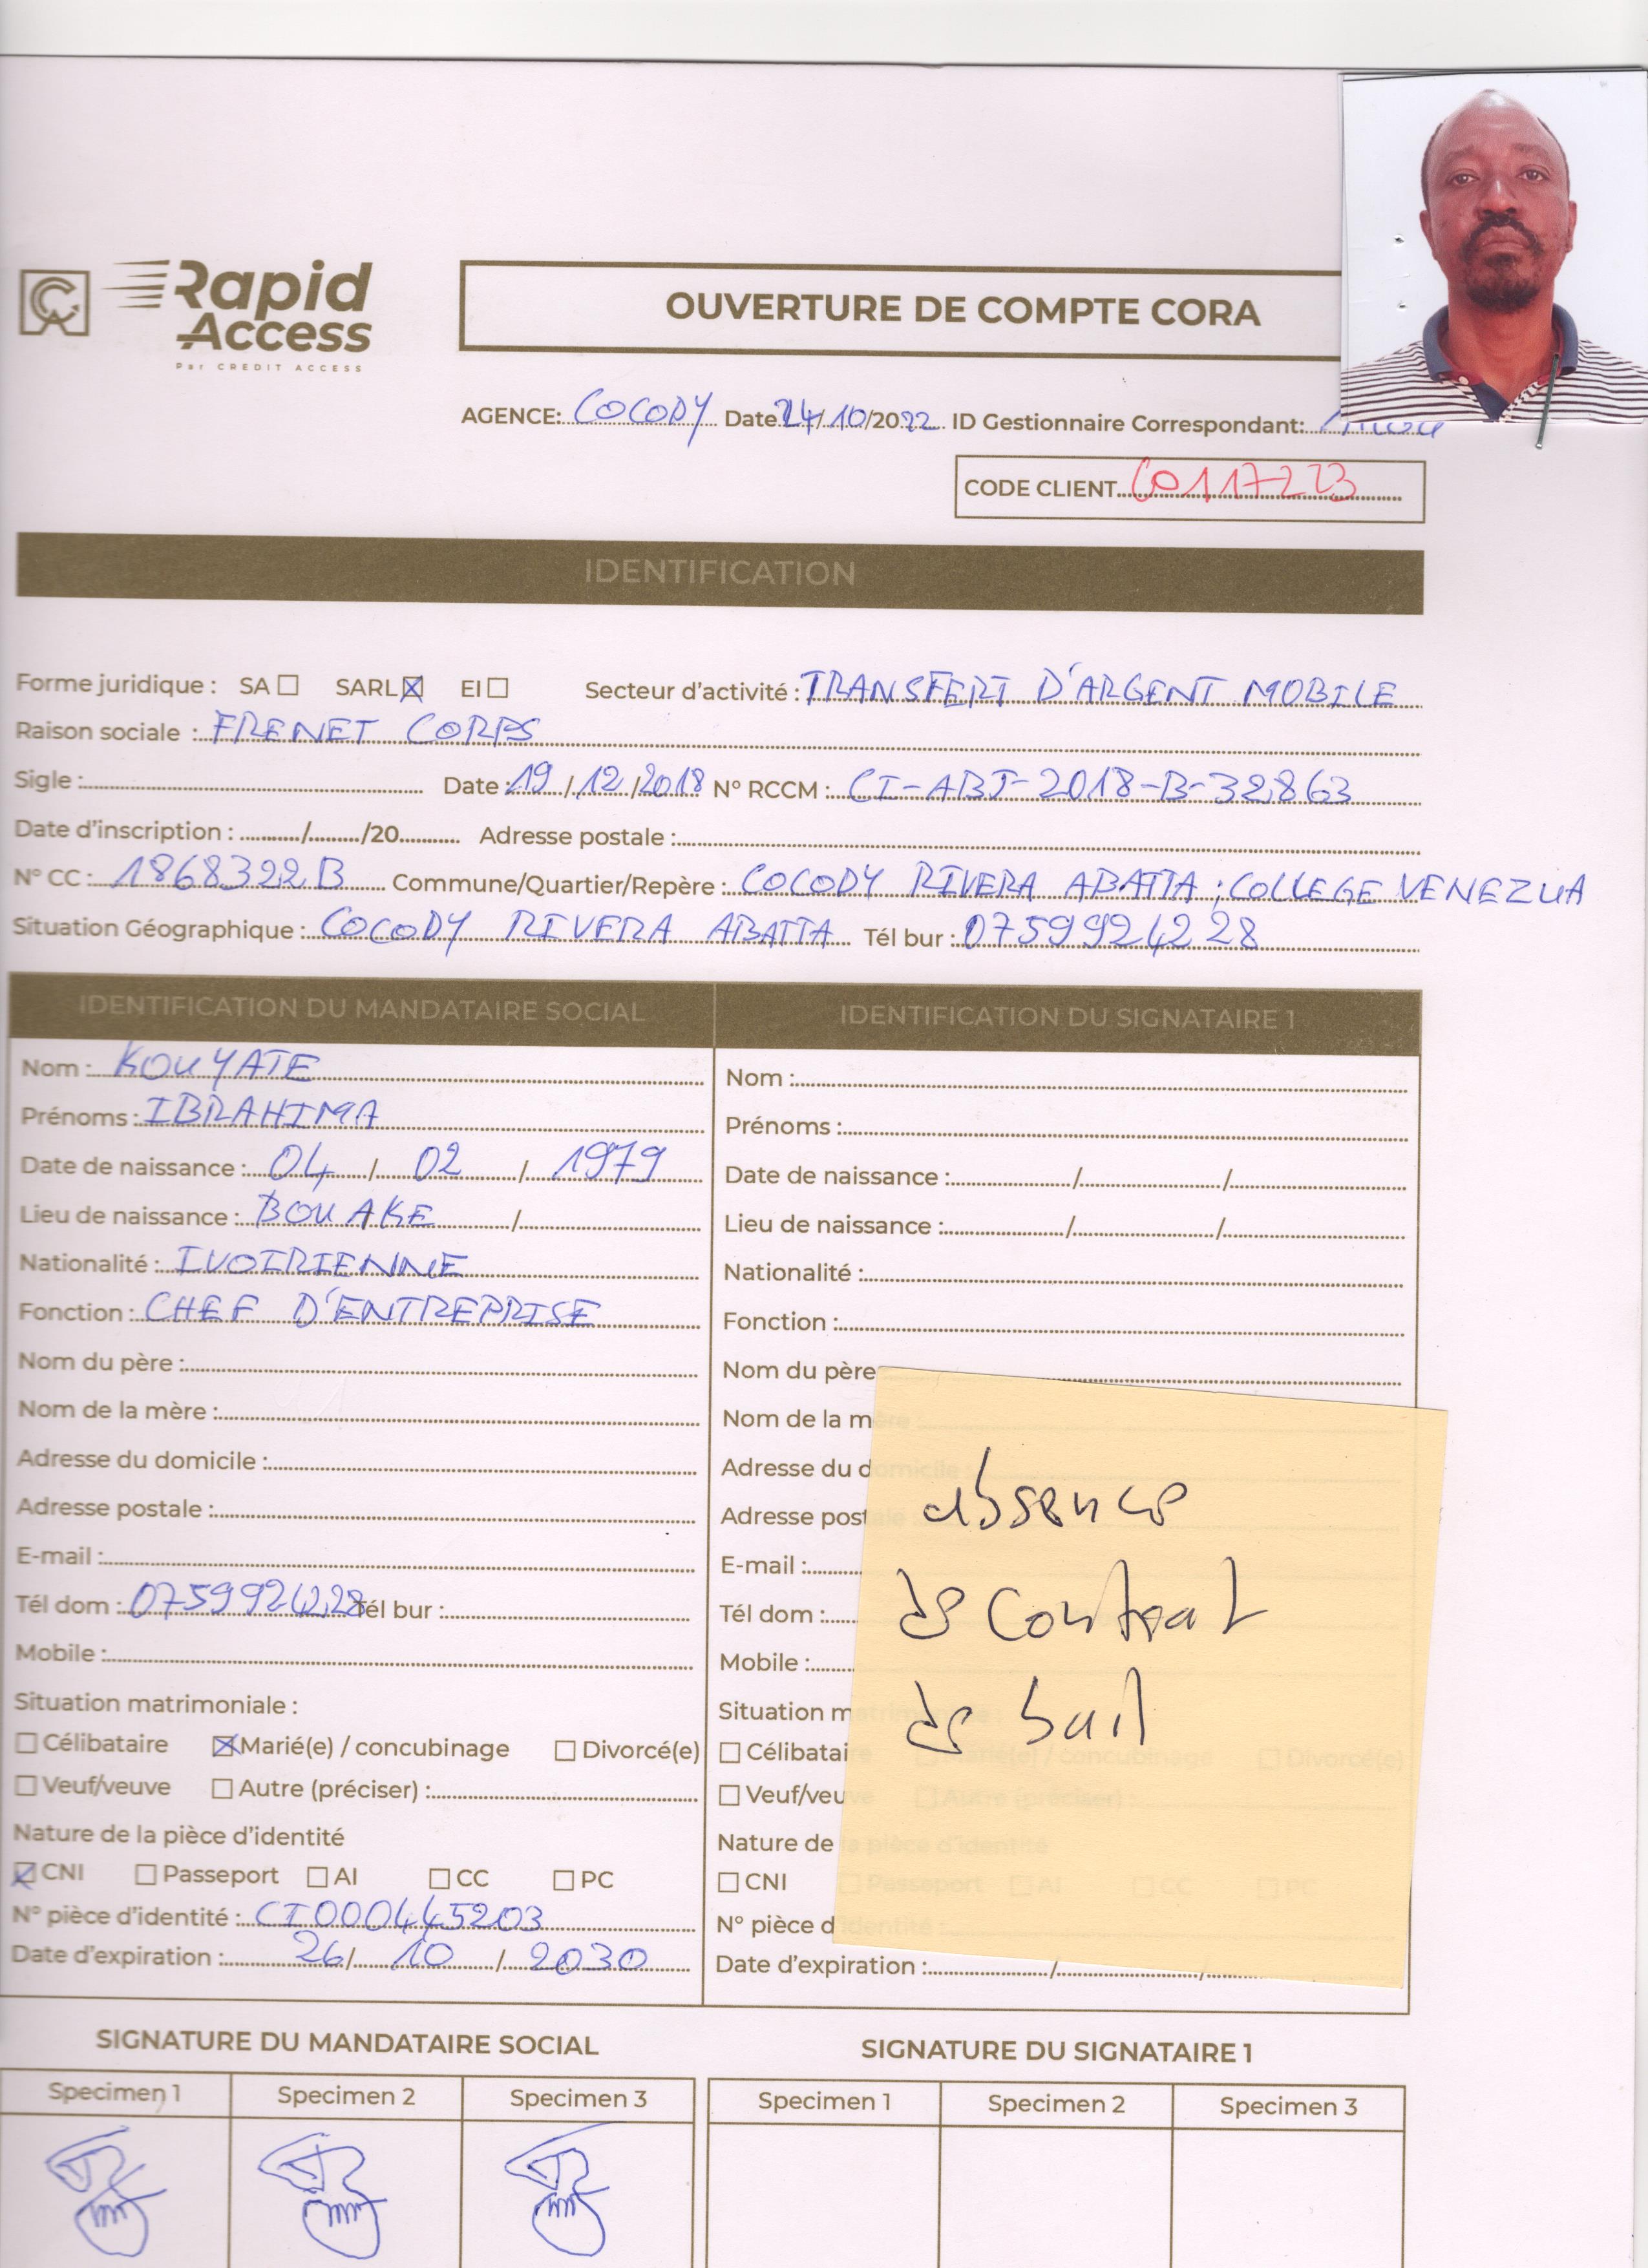 Rapid
Access
Par CREDIT ACCESS
OUVERTURE DE COMPTE CORA
AGENCE: COCODY Date 24/10/2022 ID Gestionnaire Correspondant:
CODE CLIENT CO117223
IDENTIFICATION
Forme juridique : SA SARL EI Secteur d'activité : TRANSFERT D'ARGENT MOBILE
Raison sociale : FRENET CORPS
Sigle : Date : 19/12/2018 N° RCCM : CI-ABJ-2018-B-32863
Date d'inscription : / /20 Adresse postale :
N° CC : 1868322B Commune/Quartier/Repère : COCODY RIVERA ABATTA ; COLLEGE VENEZUA
Situation Géographique : COCODY RIVERA ABATTA Tél bur : 0759924228
IDENTIFICATION DU MANDATAIRE SOCIAL
Nom : KOUYATE
Prénoms : IBRAHIMA
Date de naissance : 04 / 02 / 1979
Lieu de naissance : BOUAKE /
Nationalité : IVOIRIENNE
Fonction : CHEF D'ENTREPRISE
Nom du père :
Nom de la mère :
Adresse du domicile :
Adresse postale :
E-mail :
Tél dom : 0759924228 Tél bur :
Mobile :
Situation matrimoniale :
Célibataire Marié(e) / concubinage Divorcé(e)
Veuf/veuve Autre (préciser) :
Nature de la pièce d'identité
CNI Passeport AI CC PC
N° pièce d'identité : CI000445203
Date d'expiration : 26/ 10 / 2030
IDENTIFICATION DU SIGNATAIRE 1
Nom :
Prénoms :
Date de naissance : / /
Lieu de naissance : / /
Nationalité :
Fonction :
Nom du père
Nom de la mère :
Adresse du domicile :
Adresse postale :
E-mail :
Tél dom :
Mobile :
Situation matrimoniale :
Célibataire Marié(e) / concubinage Divorcé(e)
Veuf/veuve Autre (préciser) :
Nature de la pièce d'identité
CNI Passeport AI CC PC
N° pièce d'identité :
Date d'expiration : / /
absence
de contrat
de bail
SIGNATURE DU MANDATAIRE SOCIAL
Specimen 1 Specimen 2 Specimen 3
SIGNATURE DU SIGNATAIRE 1
Specimen 1 Specimen 2 Specimen 3